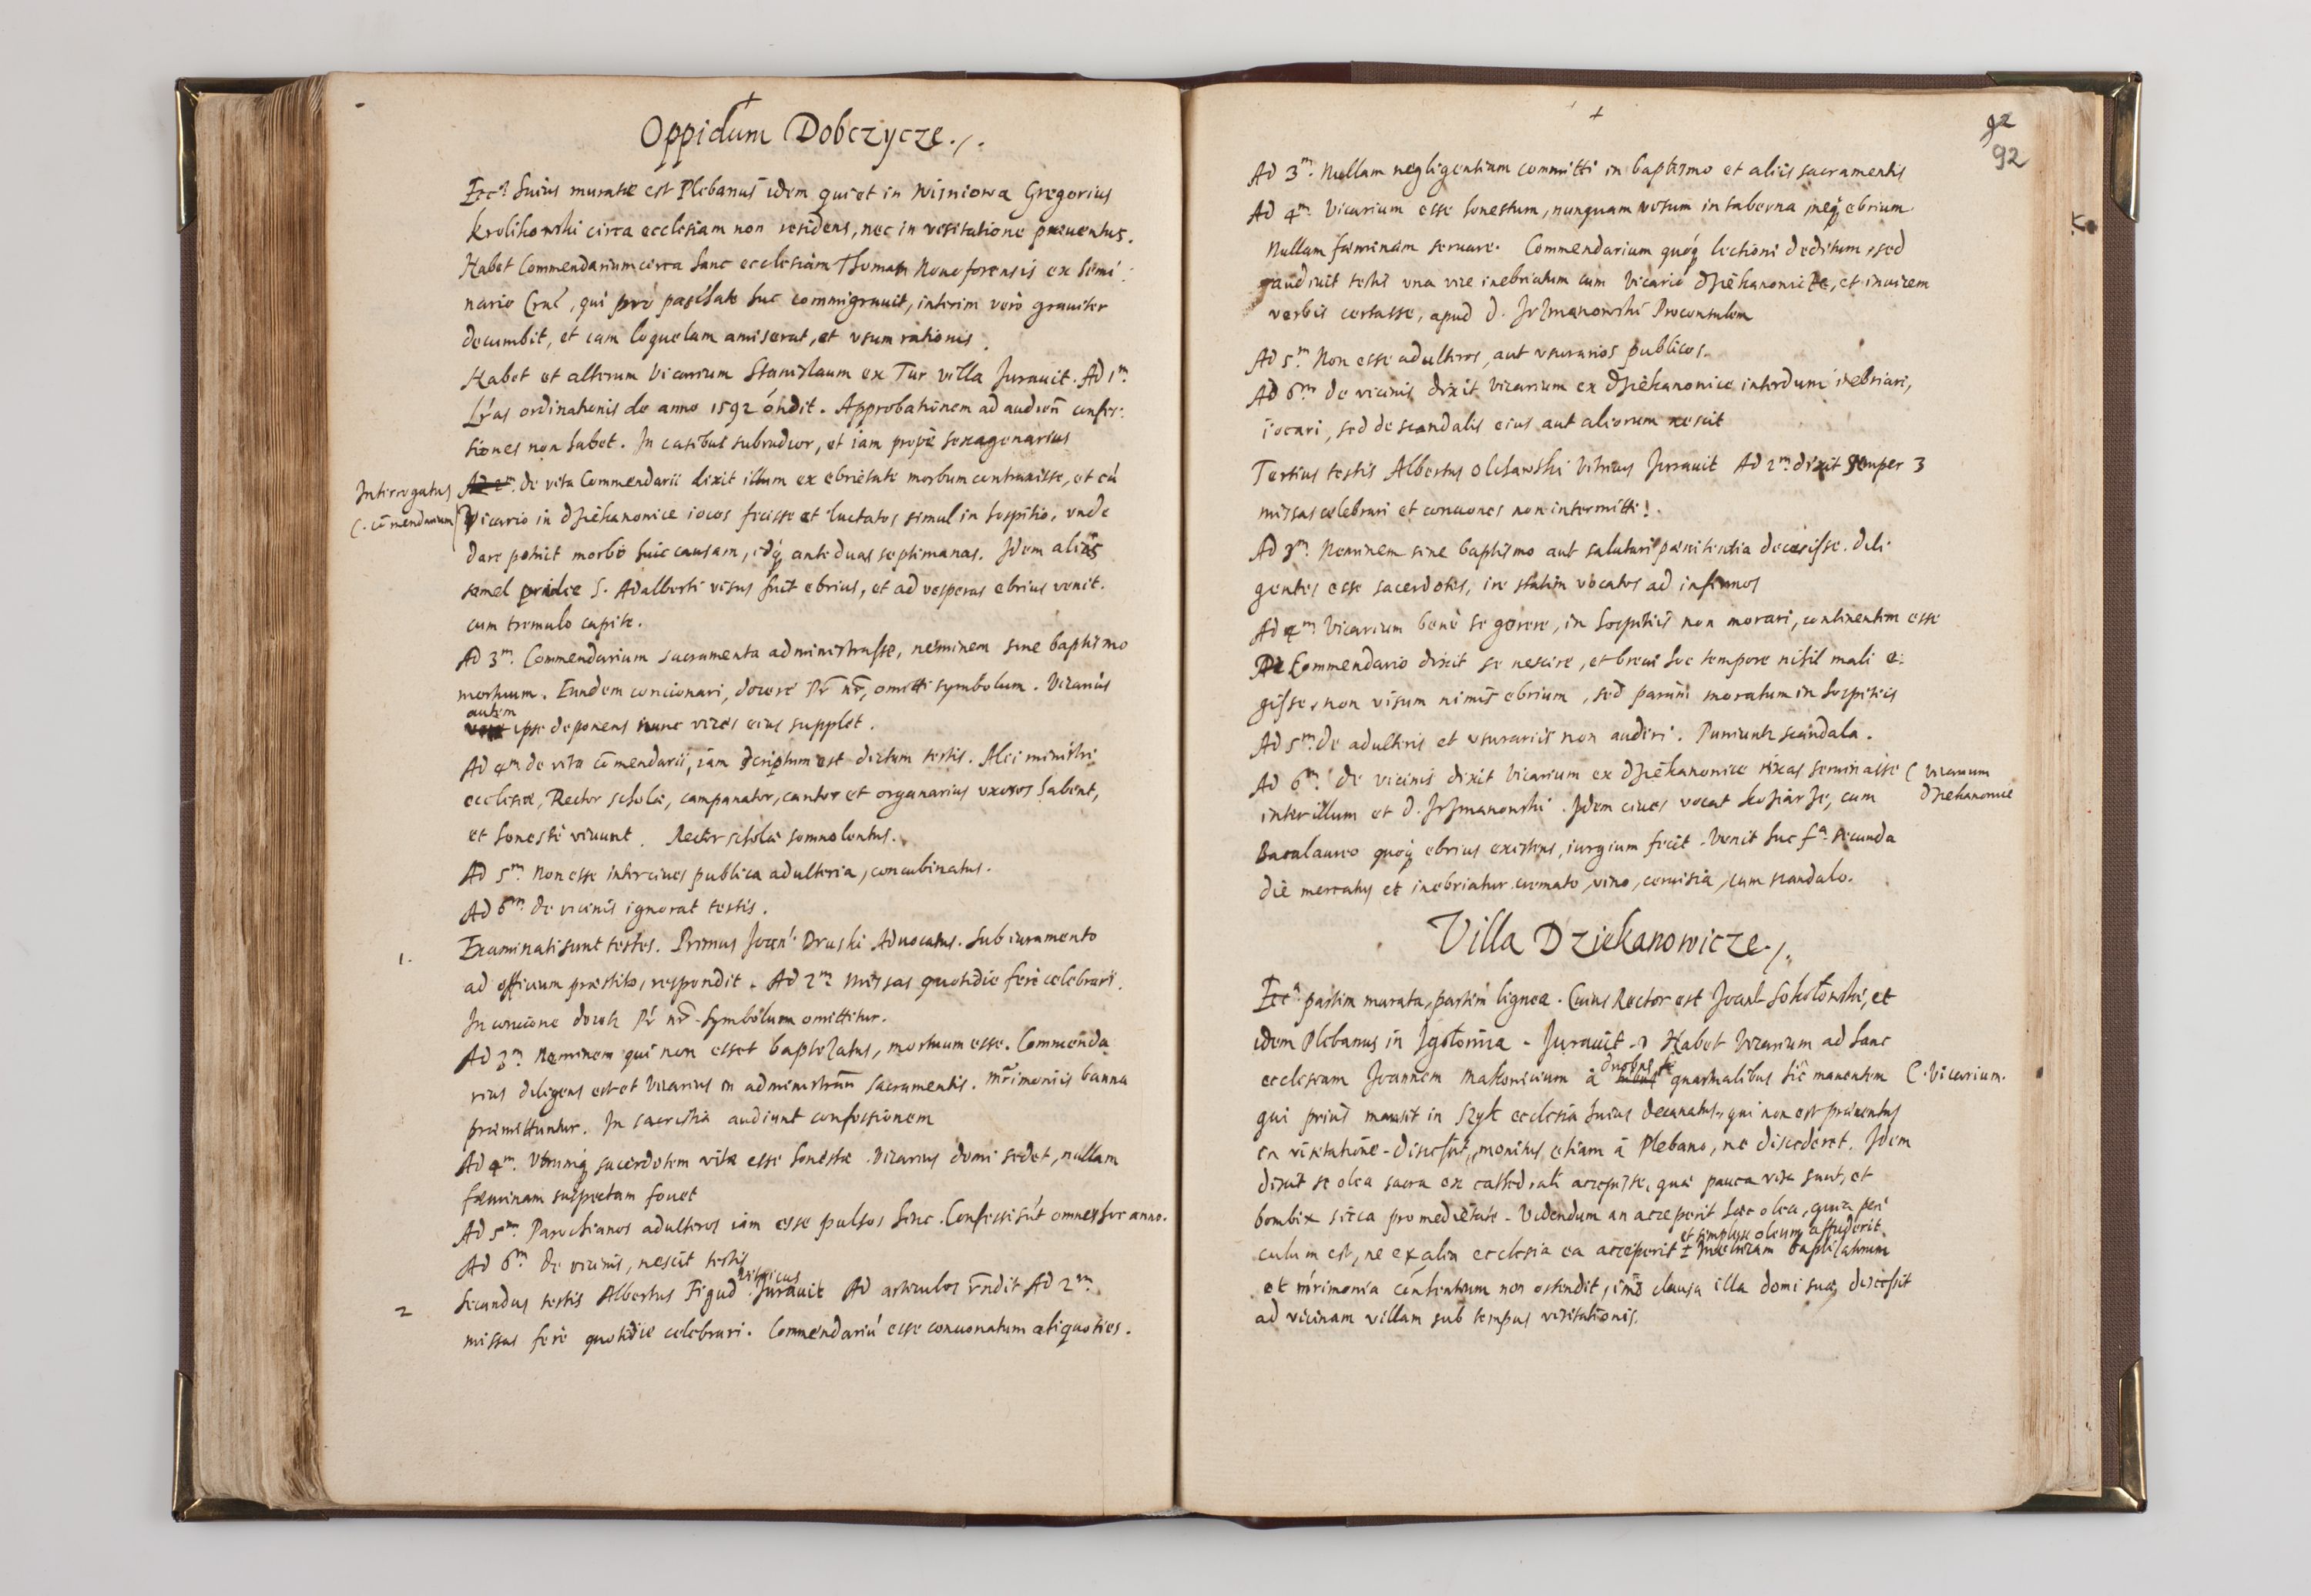 +
Oppidum Dobczycze./.
Eccᵃ huius muratæ est Plebanus idem qui et in Wisniowa Gregorius
Krolikowski circa ecclesiam non residens, nec in visitatione præuentus.
Habet Commendarium circa hanc ecclesiam Thomam Nouoforensis ex Semi:
nario Crac, qui pro paschate huc commigrauit, interim vero grauiter
decumbit, et iam loquelam amiserat, et vsum rationis.
Habet et alterum Vicarium Stanislaum ex Tur villa Jurauit. Ad 1ᵐ.
Lr̃as ordinationis de anno 1592 on̄dit. Approbationem ad audien̄ confes:
siones non habet. In casibus subrudior, et iam propè sexagenarius
Interrogatus Ad 2ᵐ. de vita Commendarii dixit illum ex ebrietate morbum contraxisse, et cū
C. cōmendarium Vicario in Dziekanowice iocos fecisse et luctatos simul in hospitio, vnde
dare potuit morbo huic causam, idq̄ ante duas septimanas. Idem alias
semel pridie S. Adalberti visus fuit ebrius, et ad vesperas ebrius venit.
cum tremulo capite.
Ad 3ᵐ. Commendarium sacramenta administrasse, neminem sine baptismo
mortuum. Eundem concionari, docere Pr̄ nr̄, omitti symbolum. Vicarius
autem
ipse deponens nunc vices eius supplet.
Ad 4ᵐ de vita cōmendarii, iam scriptum est dictum testis. Alii ministri
ecclesiæ, Rector scholæ, campanator, cantor et organarius vxores habent,
et honestè viuunt. Rector scholæ somnolentus.
Ad 5ᵐ. Non esse inter ciues publica adulteria, concubinatus.
Ad 6ᵐ. de vicinis ignorat testis.
1. Examinati sunt testes. Primus Joan̄. Druski Aduocatus. Sub iuramento
ad officium præstito, respondit. Ad 2ᵐ Missas quotidie ferè celebrari.
In concione docet Pr̄ nr̄. Symbolum omittitur.
Ad 3ᵐ. Neminem qui non esset baptizatus, mortuum esse. Commenda
rius diligens est et Vicarius in administran̄ sacramentis. Mr̄imoniis banna
præmittuntur. In sacristia audiunt confessionem
Ad 4ᵐ. Vtrumq̄ sacerdotem vitæ esse honestæ. Vicarius domi sedet, nullam
fæminam suspectam fouet
Ad 5ᵐ. Parochianos adulteros iam esse pulsos hinc. Confessi sūt omnes hoc anno.
Ad 6ᵐ de vicinis, nescit testis
vitricus
2 Secundus testis Albertus Figud Jurauit Ad articulos rn̄dit Ad 2ᵐ.
missas ferè quotidie celebrari. Commendariū esse concionatum aliquoties.
+
92
92
Ad 3ᵐ. Nullam negligentiam committi in baptismo et aliis sacramentis
Ad 4ᵐ. Vicarium esse honestum, nunquam visum in taberna neq̄ ebrium.
Nullam fæminam seruare. Commendarium quoq̄ lectioni deditum, sed
audiuit testis vna vice inebriatum cum Vicario Dziekanowice, et inuicem
verbis certasse, apud D. Jrzmanowski Proconsulem
Ad 5ᵐ Non esse adulteros, aut vsurarios publicos.
Ad 6ᵐ de vicinis dixit Vicarium ex Dziekanowice interdum inebriari,
iocari, sed de scandalis eius aut aliorum nescit
Tertius testis Albertus Olesawski Vitricus Jurauit Ad 2ᵐ. dixit semper 3
missas celebrari et conciones non intermitti.
Ad 3ᵐ. Neminem sine baptismo aut salutari pænitentia decessisse. Dili
gentes esse sacerdotes, ire statim vocatos ad infirmos
Ad 4ᵐ Vicarium benè se gerere, in hospitiis non morari, continentem esse
De Commendario dixit se nescire, et breui hoc tempore nihil mali e:
gisse, non visum nimis ebrium, sed parum moratum in hospitiis
Ad 5ᵐ. de adulteris et vsurariis non audiri. Puniunt scandala.
Ad 6ᵐ. de vicinis dixit Vicarium ex Dziekanowice rixas seminasse C. vicarium
inter illum et D. Jrzmanowski. Idem ciues vocat koziarze, cum Dziekanowice
Bacalaureo quoq̄ ebrius existens, iurgium fecit. Venit huc fᵃ. secunda
die mercatus et inebriatur cremato, vino, ceruisia, cum scandalo.
Villa Dziekanowicze./.
Eccᵃ. partim murata, partim lignea. Cuius Rector est Joan̄ Sokołowski, et
idem Plebanus in Igołomia. Jurauit. Habet Vicarium ad hanc
duobus
ecclesiam Joannem Makouicium à quartalibus hic manentem C. Vicarium.
qui prius mansit in Szyk ecclesia huius decanatus, qui non est præuentus
in visitatione. Discessit, monitus etiam à Plebano, ne discederet. Idem
dixit se olea sacra ex cathedrali accepisse, quæ pauca visa sunt, et
bombix sicca pro medietate. Videndum an acceperit hæc olea, quia peri
et simplex oleum affuderit
culum est, ne ex alia ecclesia ea acceperit ± Metricam baptizatorum
et mr̄imonia contrahentium non ostendit, imò clausa illa domi suæ, discessit
ad vicinam villam sub tempus visitationis.